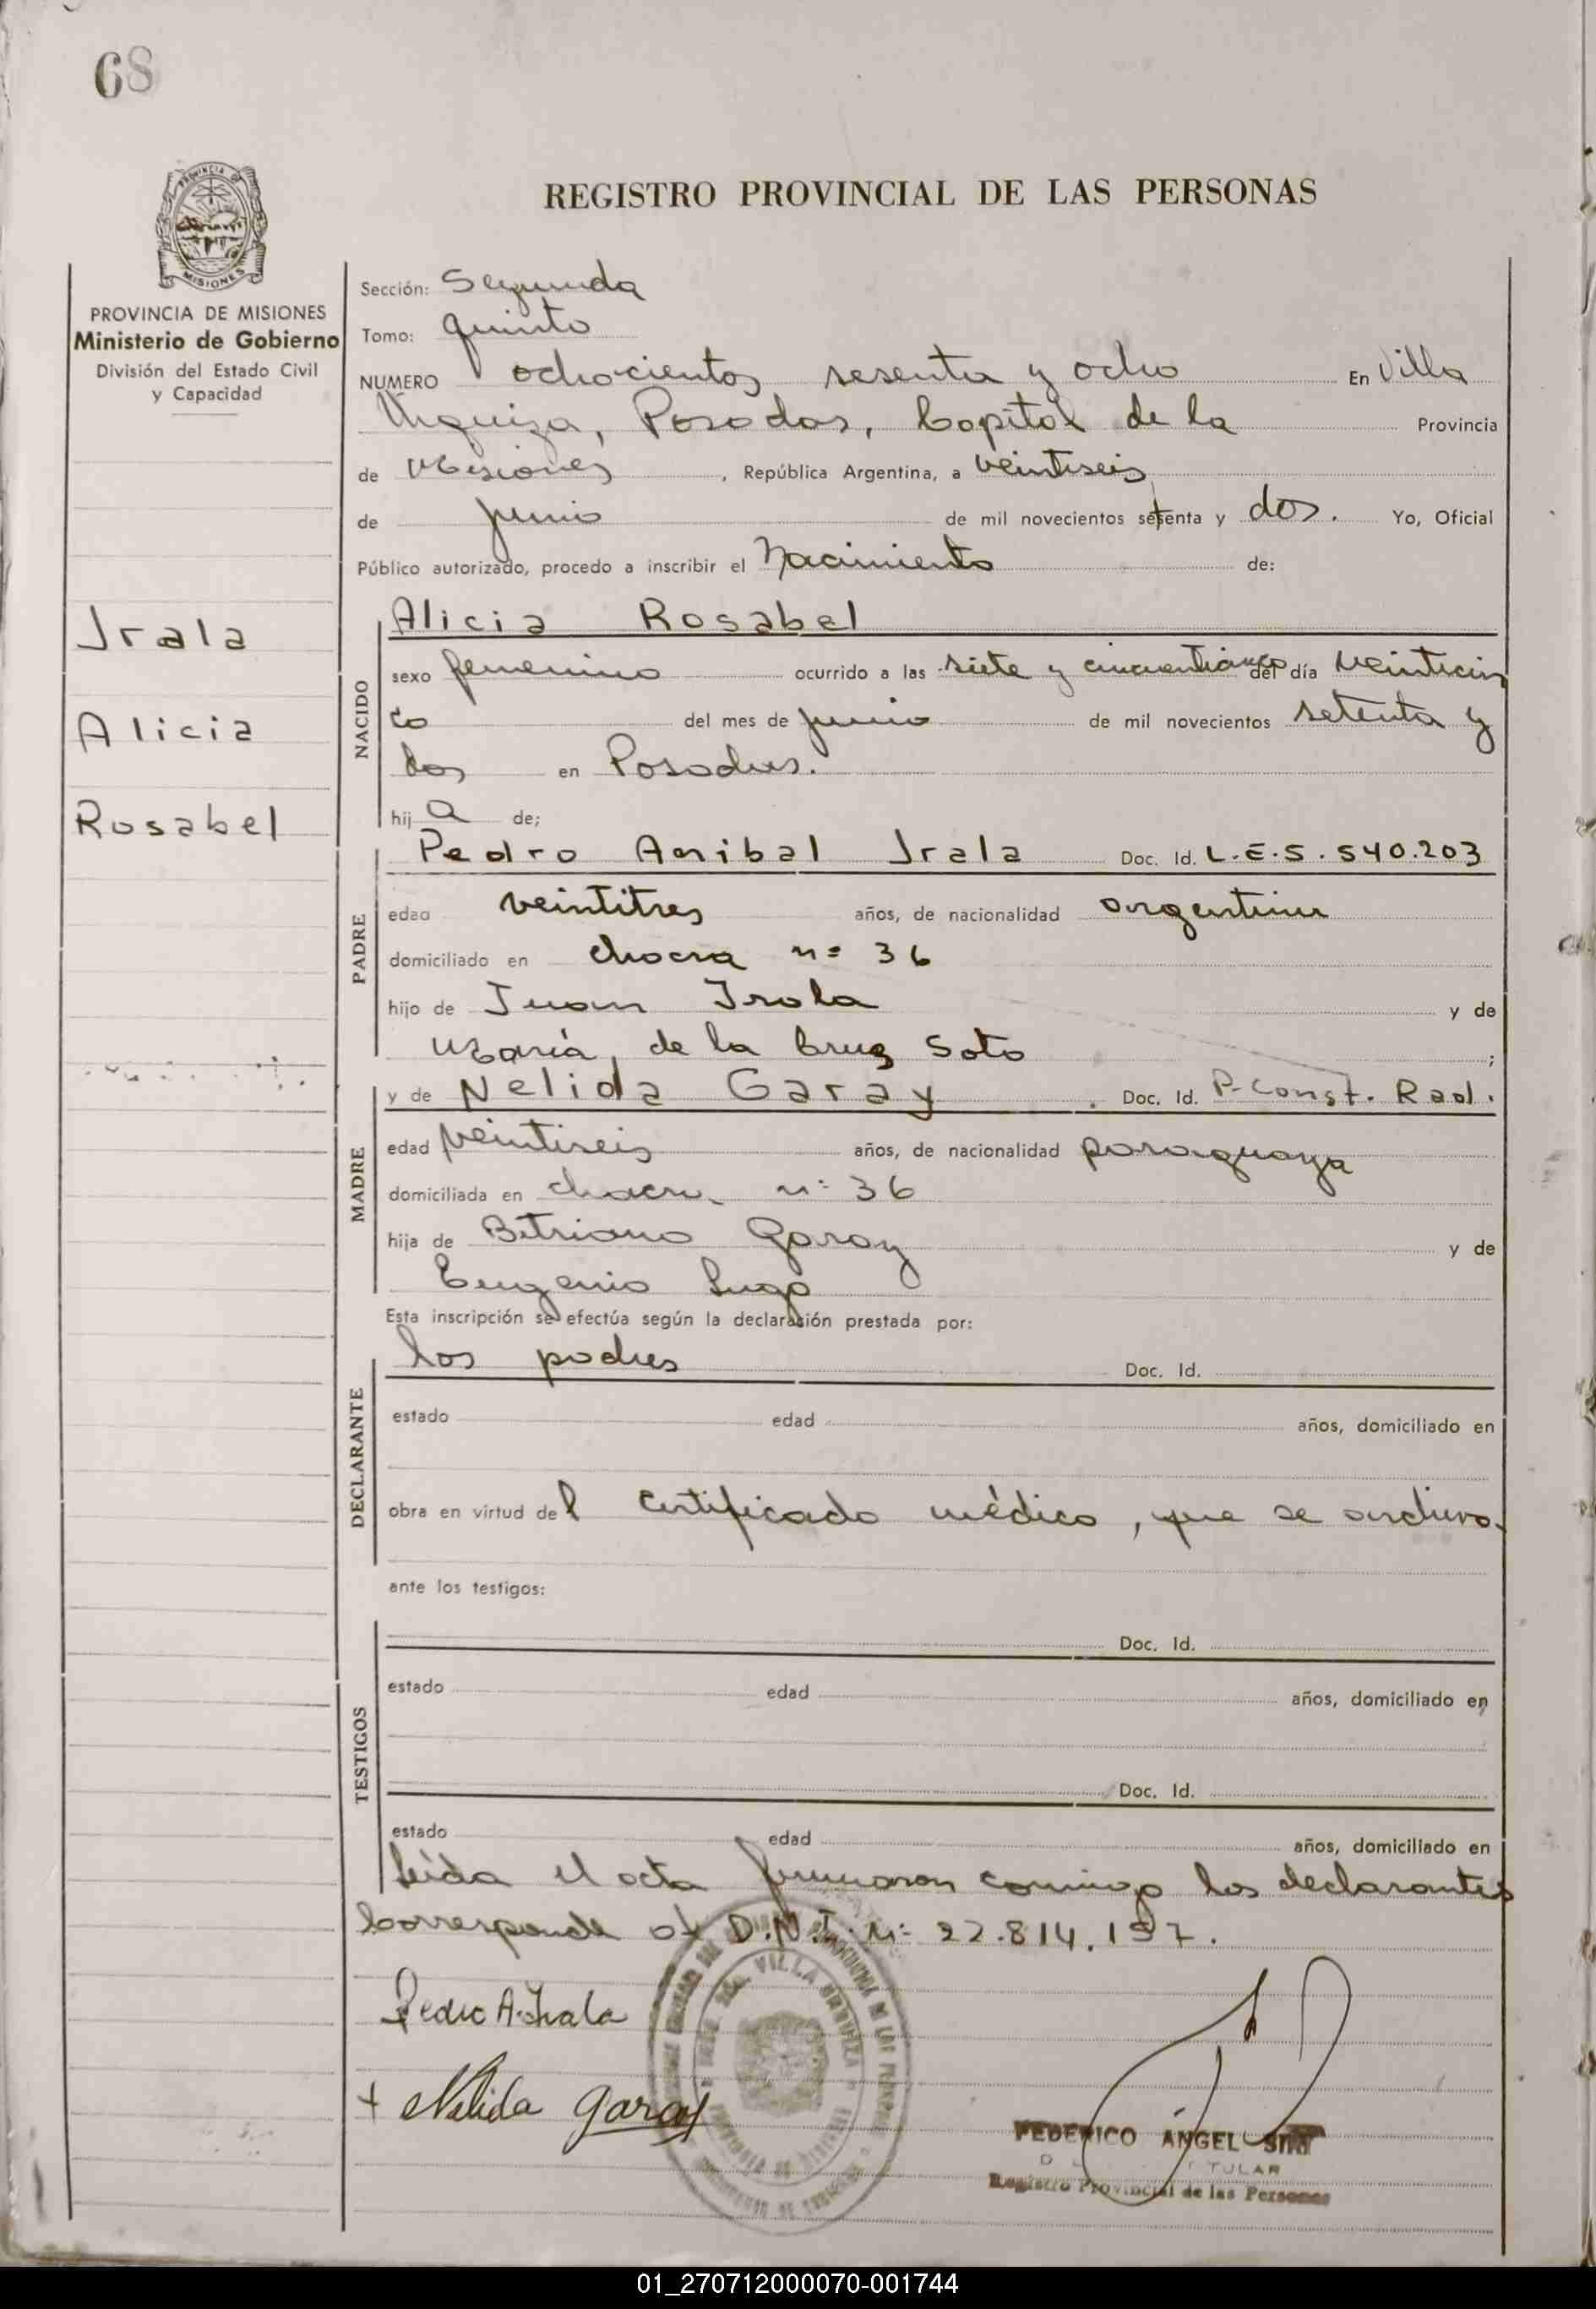 68
REGISTRO PROVINCIAL DE LAS PERSONAS
MISIONES
PROVINCIA DE MISIONES
Ministerio de Gobierno
División del Estado Civil
y Capacidad
Irala
Alicia
Rosabel
Sección: Segunda
Tomo: quinto
NUMERO ochocientos sesenta y ocho En Villa
Urquiza, Posadas, Capital de la Provincia
de Misiones, República Argentina, a veintiseis
de junio de mil novecientos setenta y dos. Yo, Oficial
Público autorizado, procedo a inscribir el Nacimiento de:
NACIDO
Alicia Rosabel
sexo femenino ocurrido a las siete y cincuenticinco del día veinticin
co del mes de junio de mil novecientos setenta y
dos en Posadas.
hija de;
PADRE
Pedro Anibal Irala Doc. Id. L.E.5.540.203
edad veintitres años, de nacionalidad argentina
domiciliado en chacra nº 36
hijo de Juan Irala y de
María de la Cruz Soto ;
MADRE
y de Nelida Garay . Doc. Id. P-Const. Rad.
edad veintiseis años, de nacionalidad paraguaya
domiciliada en chacra nº 36
hija de Garay y de
Eugenia Lugo
Esta inscripción se efectúa según la declaración prestada por:
DECLARANTE
los padres Doc. Id.
estado edad años, domiciliado en
obra en virtud del certificado médico, que se archiva.
ante los testigos:
TESTIGOS
Doc. Id.
estado edad años, domiciliado en
Doc. Id.
estado edad años, domiciliado en
Leída el acta firmaron conmigo los declarantes
Corresponde al D.N.I. Nº 22.814.197.
Pedro A. Irala
+ Nelida Garay
VILLA URQUIZA
FEDERICO ÁNGEL
TULAR
Registro Provincial de las Personas
01_270712000070-001744